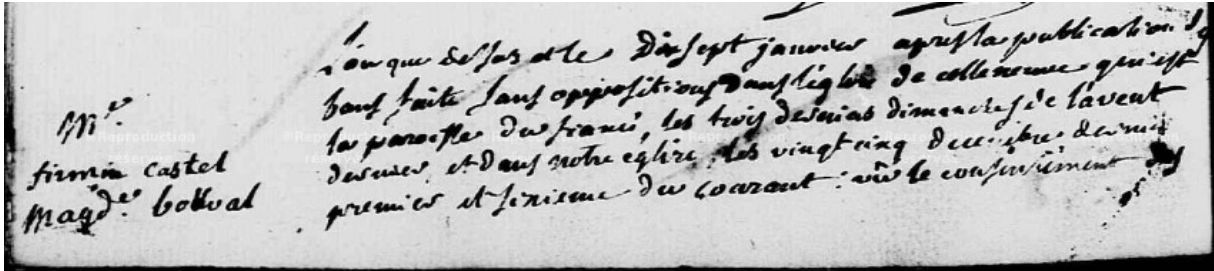 Mge.
firmin castel
Magde. bouval
L'an que dessus et le Dixsept janvier apres la publication des
bans faite sans oppositions dans l'église de colleneuve qui est
la paroisse du fiancé, les trois derniers dimanches de l'avent
dernier, et dans notre eglise les vingt cinq decembre dernier
premier et sixieme du courant : vû le consentiment des